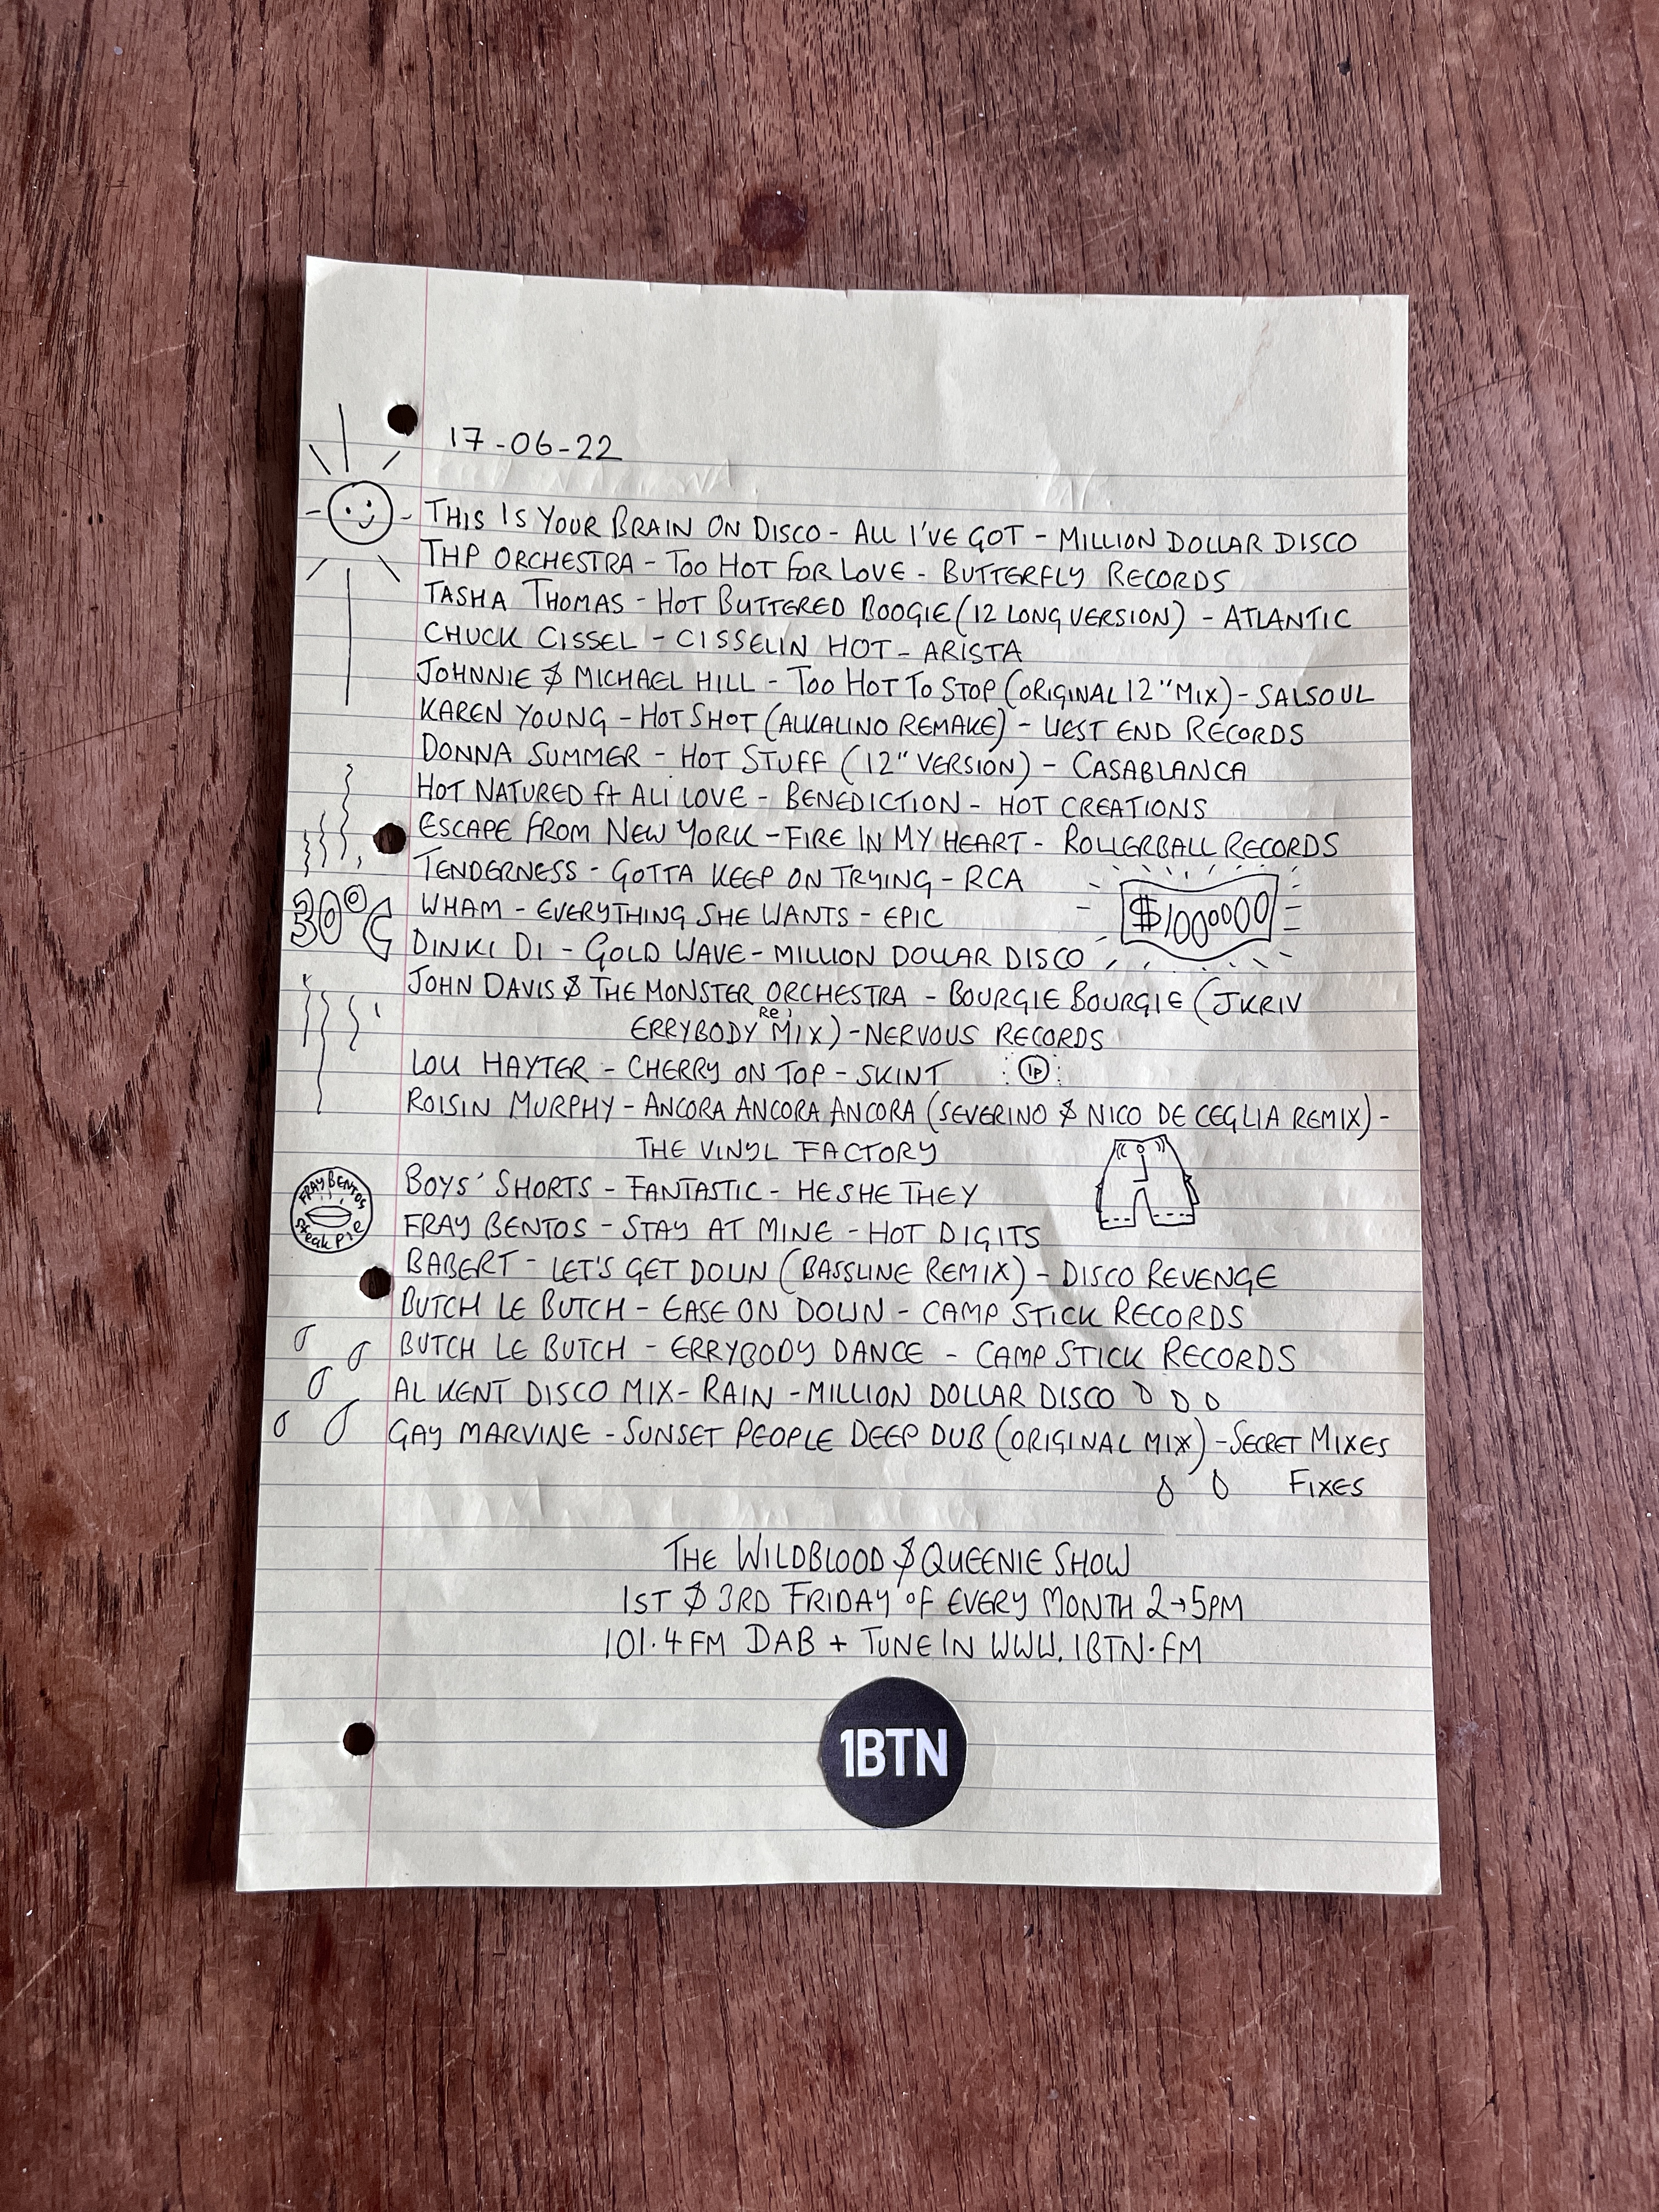 17-06-22
THIS IS YOUR BRAIN ON DISCO - ALL I'VE GOT - MILLION DOLLAR DISCO
THP ORCHESTRA - TOO HOT FOR LOVE - BUTTERFLY RECORDS
TASHA THOMAS - HOT BUTTERED BOOGIE (12 LONG VERSION) - ATLANTIC
CHUCK CISSEL - CISSELIN HOT - ARISTA
JOHNNIE & MICHAEL HILL - TOO HOT TO STOP (ORIGINAL 12" MIX) - SALSOUL
KAREN YOUNG - HOT SHOT (ALKALINO REMAKE) - WEST END RECORDS
DONNA SUMMER - HOT STUFF (12" VERSION) - CASABLANCA
HOT NATURED ft ALI LOVE - BENEDICTION - HOT CREATIONS
ESCAPE FROM NEW YORK - FIRE IN MY HEART - ROLLERBALL RECORDS
TENDERNESS - GOTTA KEEP ON TRYING - RCA
30°C
WHAM - EVERYTHING SHE WANTS - EPIC
$1000000
DINKI DI - GOLD WAVE - MILLION DOLLAR DISCO
JOHN DAVIS & THE MONSTER ORCHESTRA - BOURGIE BOURGIE (JKRIV
ERRYBODY ReMIX) - NERVOUS RECORDS
LOU HAYTER - CHERRY ON TOP - SKINT
1P
ROISIN MURPHY - ANCORA ANCORA ANCORA (SEVERINO & NICO DE CEGLIA REMIX) -
THE VINYL FACTORY
BOYS' SHORTS - FANTASTIC - HE SHE THEY
FRAY BENTOS
Steak Pie
FRAY BENTOS - STAY AT MINE - HOT DIGITS
BABERT - LET'S GET DOWN (BASSLINE REMIX) - DISCO REVENGE
BUTCH LE BUTCH - EASE ON DOWN - CAMP STICK RECORDS
BUTCH LE BUTCH - ERRYBODY DANCE - CAMP STICK RECORDS
AL KENT DISCO MIX - RAIN - MILLION DOLLAR DISCO
GAY MARVINE - SUNSET PEOPLE DEEP DUB (ORIGINAL MIX) - SECRET MIXES
FIXES
THE WILDBLOOD & QUEENIE SHOW
1ST & 3RD FRIDAY OF EVERY MONTH 2→5PM
101.4 FM DAB + TUNE IN WWW.1BTN.FM
1BTN